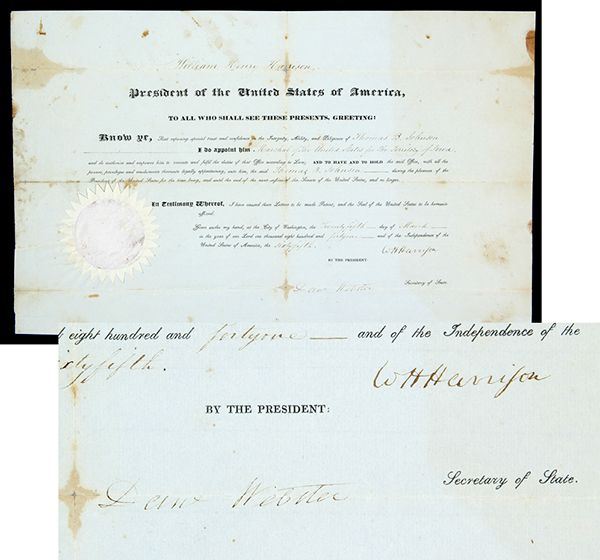 William Henry Harrison,
President of the United States of America,
TO ALL WHO SHALL SEE THESE PRESENTS, GREETING:
Know ye, That reposing special trust and confidence in the Integrity, Ability, and Diligence of Thomas B. Johnson
I do appoint him Marshal of the United States for the Territory of Iowa
and do authorize and empower him to execute and fulfil the duties of that Office according to Law; AND TO HAVE AND TO HOLD the said Office, with all the
powers, privileges and emoluments thereunto legally appertaining, unto him, the said Thomas B. Johnson during the pleasure of the
President of the United States for the time being, and until the end of the next session of the Senate of the United States, and no longer.
In Testimony Whereof, I have caused these Letters to be made Patent, and the Seal of the United States to be hereunto
affixed.
Given under my hand, at the City of Washington, the Twenty fifth day of March
in the year of our Lord one thousand eight hundred and fortyone and of the Independence of the
United States of America, the Sixty fifth.
W H Harrison
BY THE PRESIDENT:
Danl Webster
Secretary of State.
eight hundred and fortyone — and of the Independence of the
ixtyfifth.
W H Harrison
BY THE PRESIDENT:
Secretary of State.
Danl Webster